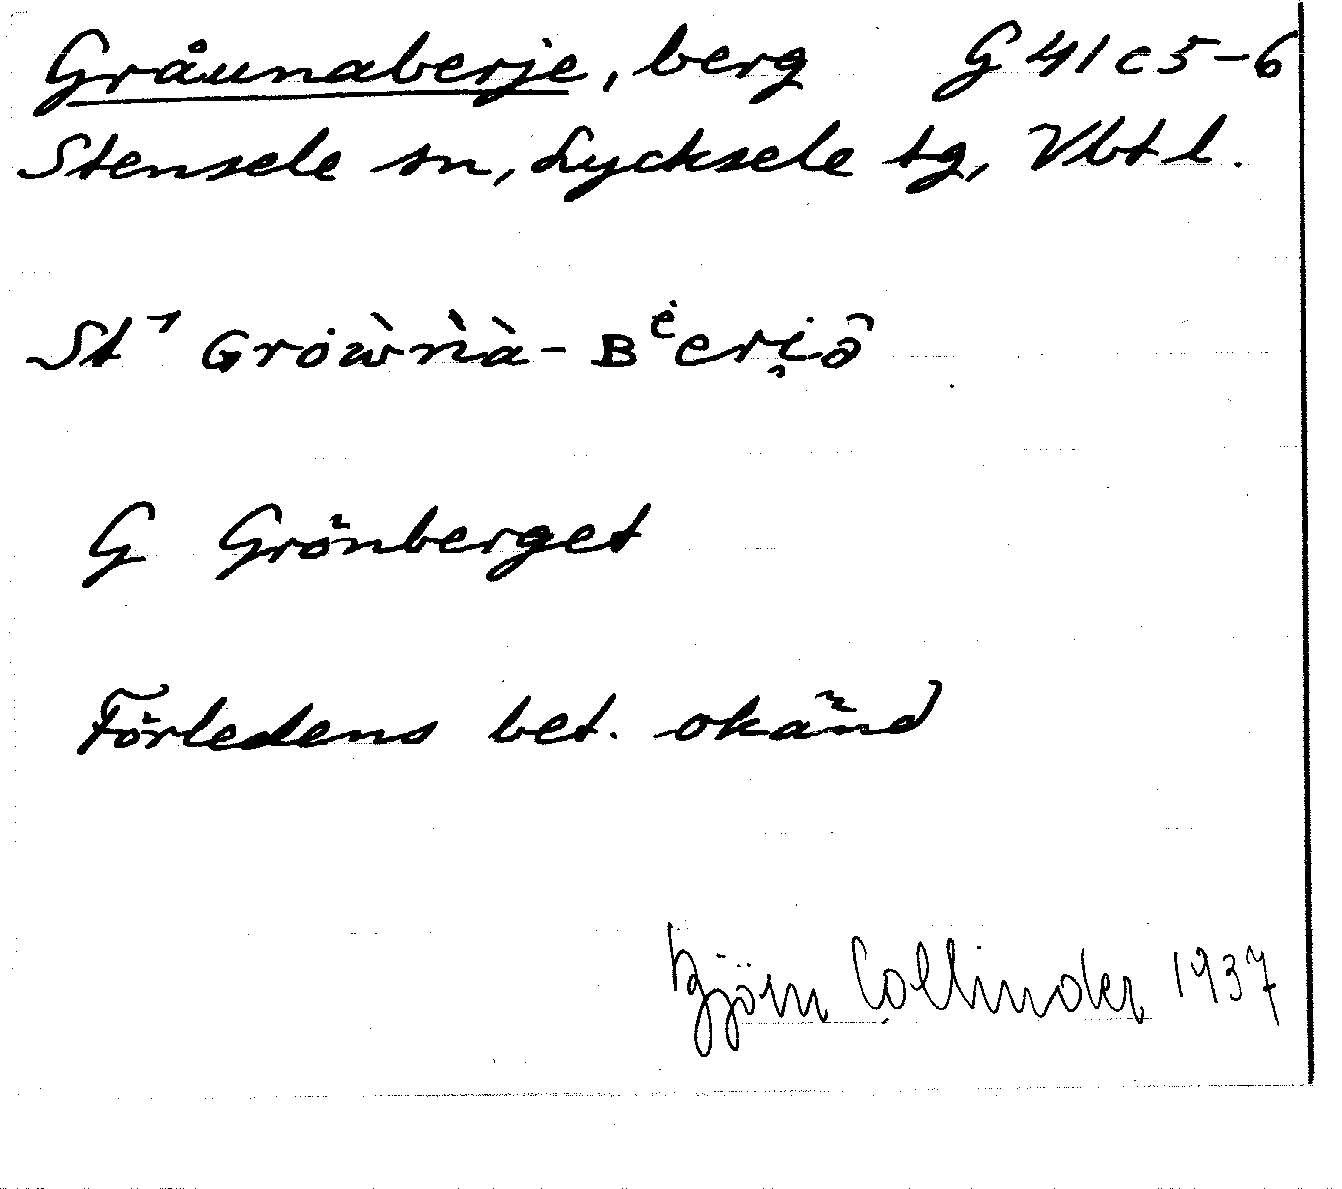 Gråunaberje, berg G 41 c 5-6
Stensele sn, Lycksele tg, Vbtl.
St⁊ Gròẁǹà-Bᵉeri̯ô
G Grönberget
Förledens bet. okänd
Björn Collinder 1937